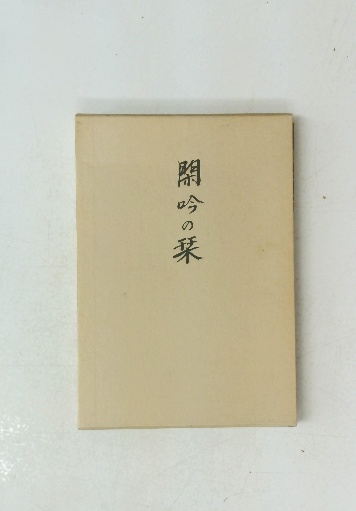 閑吟の栞